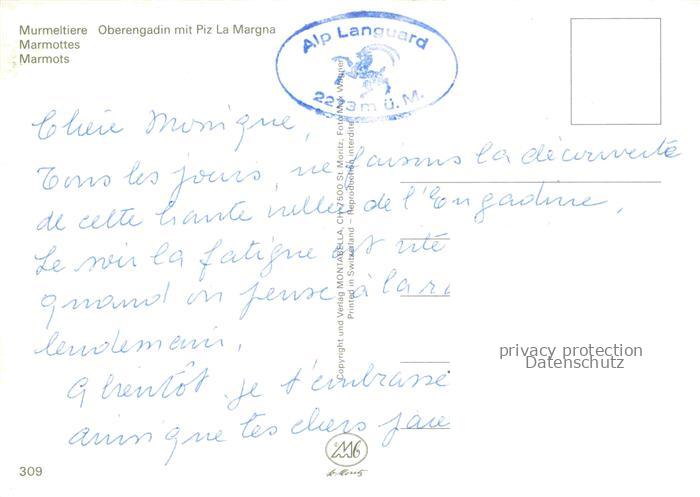 Murmeltiere Oberengadin mit Piz La Margna
Marmottes
Marmots
Alp Languard
m ü. M.
Chère Monique,
Tous les jours, ne faisons la découverte
de cette haute vallée de l'Engadine,
Le soir la fatigue est vite
quand on pense à la
lendemain.
A bientôt, je t'embrasse
ainsi que tes chers
Copyright und Verlag MONTABELLA, CH-7500 St. Moritz, Foto Max Wagner
Printed in Switzerland – Reproduction interdite
privacy protection
Datenschutz
309
St. Moritz